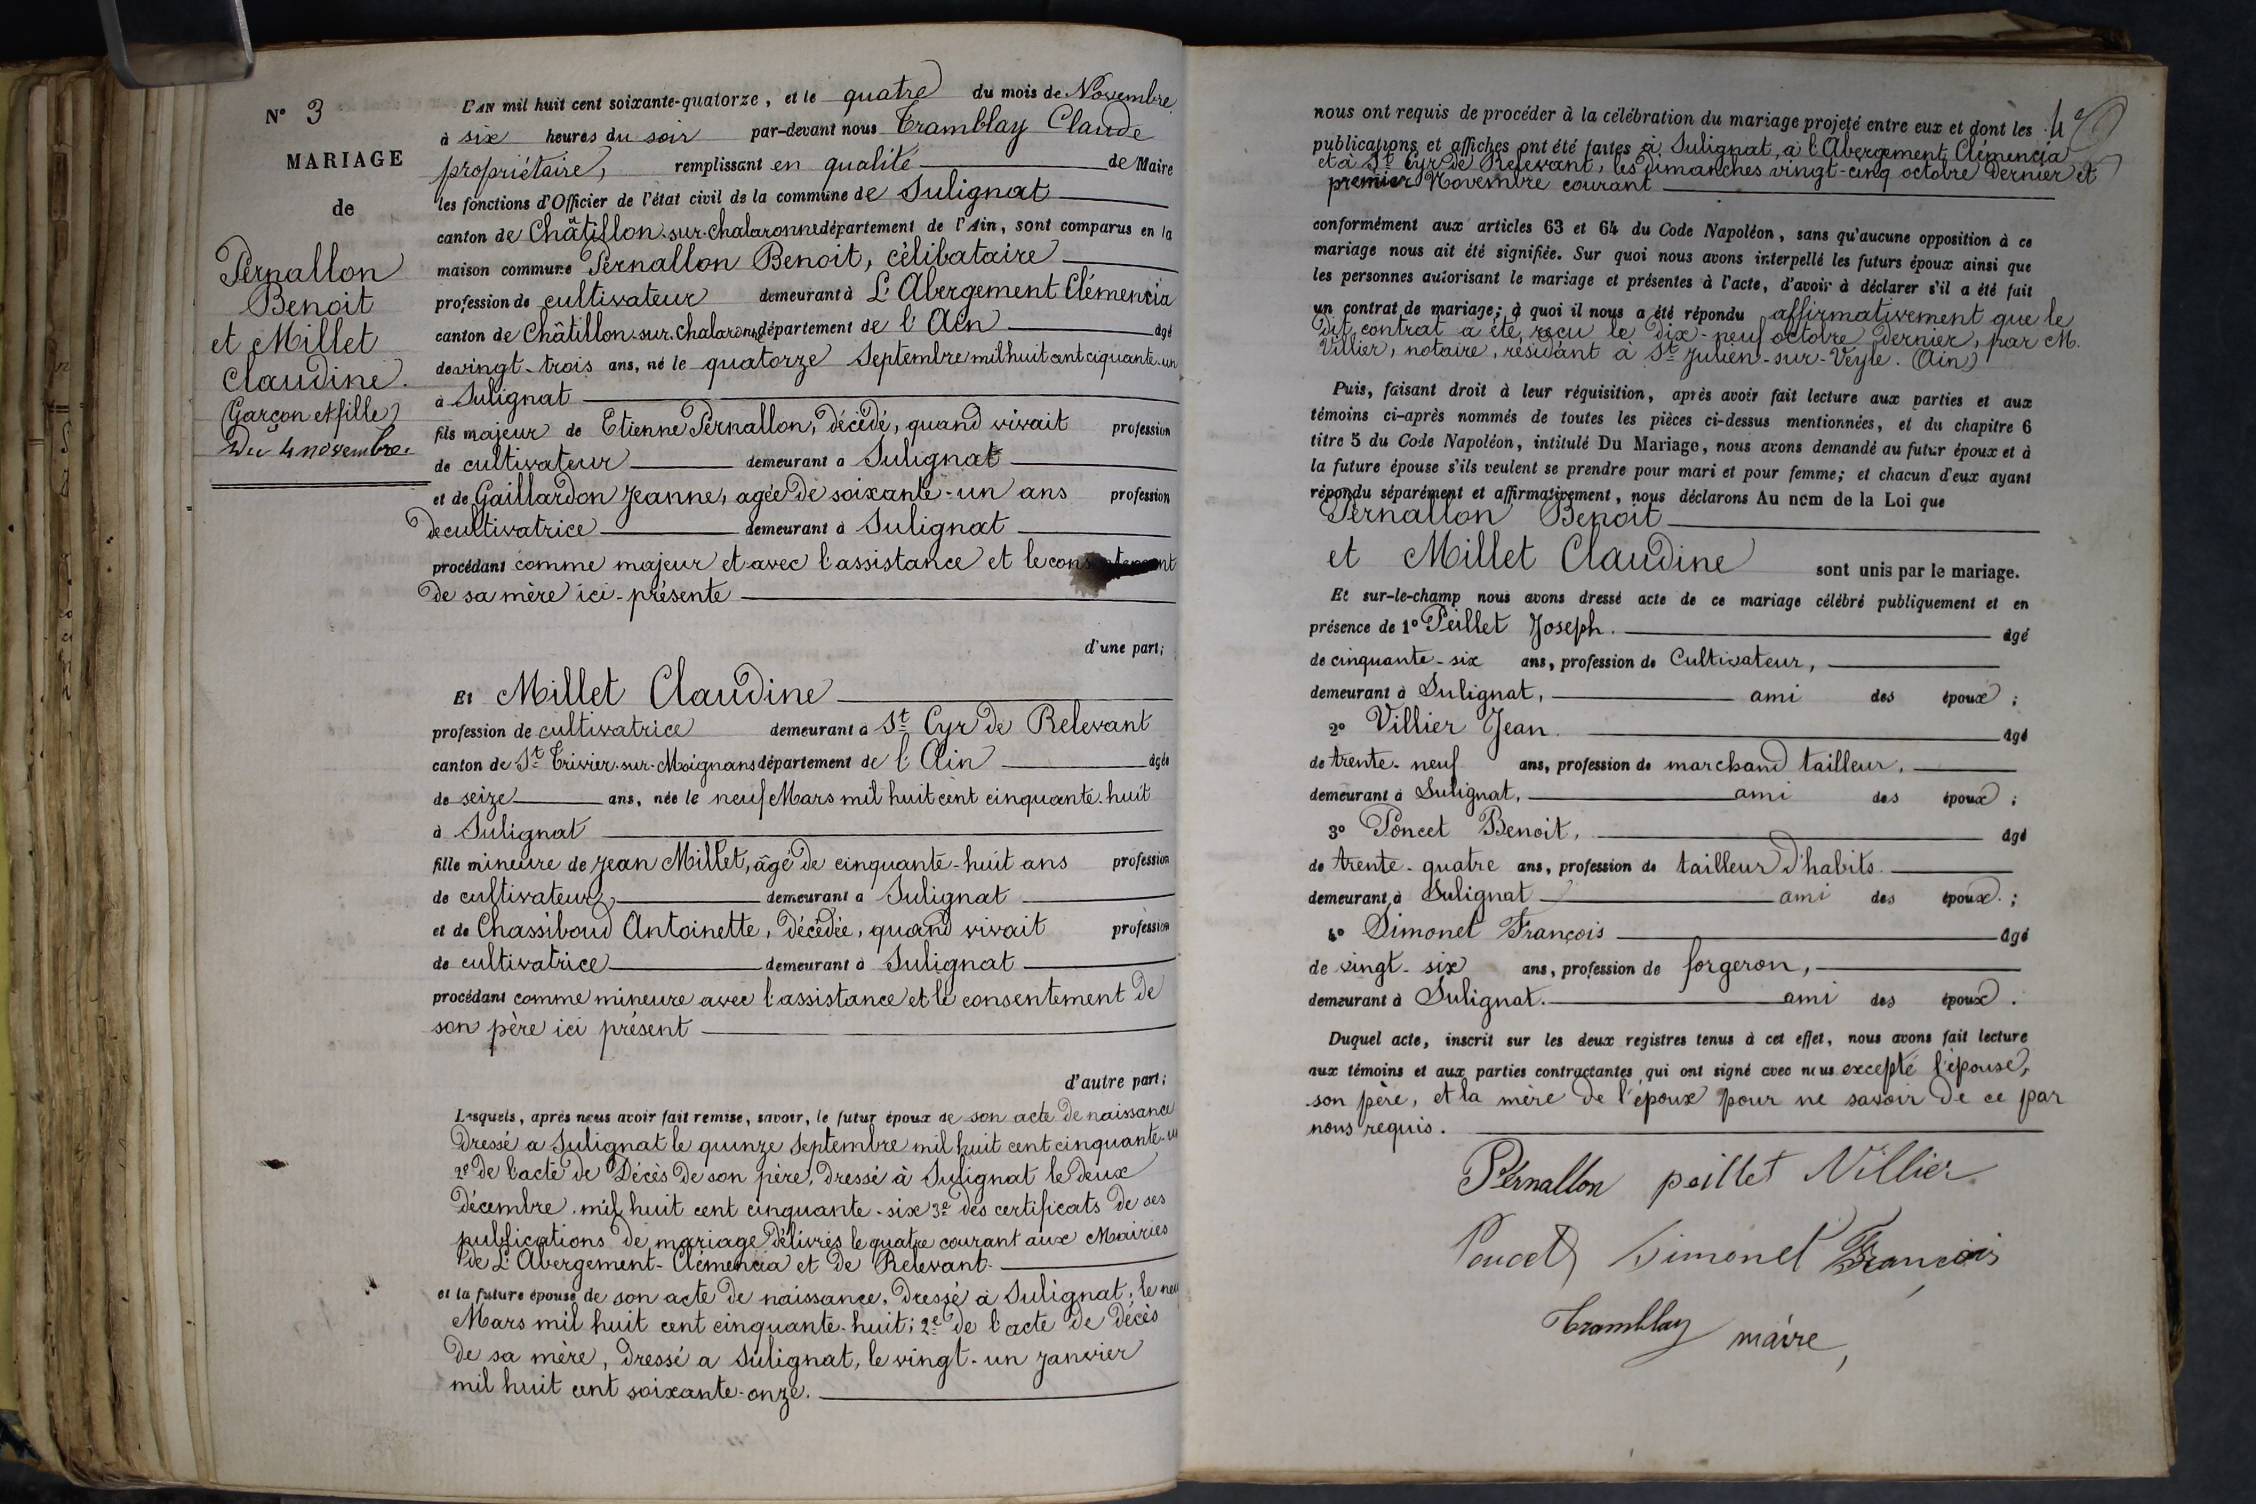 N° 3
MARIAGE
de
Pernallon
Benoit
et Millet
Claudine.
(Garçon et fille)
Du 4 novembre.
L'AN mil huit cent soixante-quatorze, et le quatre du mois de Novembre
à six heures du soir par-devant nous Tramblay Claude
propriétaire, remplissant en qualité de Maire
les fonctions d'Officier de l'état civil de la commune de Sulignat
canton de Châtillon-sur-Chalaronne département de l'Ain, sont comparus en la
maison commune Pernallon Benoit, célibataire
profession de cultivateur demeurant à L'Abergement Clémencia
canton de Châtillon-sur-Chalaronne département de l'Ain âgé
de vingt-trois ans, né le quatorze Septembre mil huit cent ciquante-un
à Sulignat
fils majeur de Etienne Pernallon, décédé, quand vivait profession
de cultivateur demeurant à Sulignat
et de Gaillardon Jeanne, agée de soixante-un ans profession
de cultivatrice demeurant à Sulignat
procédant comme majeur et avec l'assistance et le consentement
de sa mère ici-présente
d'une part;
Et Millet Claudine
profession de cultivatrice demeurant à St Cyr de Relevant
canton de St Trivier-sur-Moignans département de l'Ain âgée
de seize ans, née le neuf Mars mil huit cent cinquante-huit
à Sulignat
fille mineure de Jean Millet, âgé de cinquante-huit ans profession
de cultivateur, demeurant à Sulignat
et de Chassiboud Antoinette, décédée, quand vivait profession
de cultivatrice demeurant à Sulignat
procédant comme mineure avec l'assistance et le consentement de
son père ici présent
d'autre part;
Lesquels, après nous avoir fait remise, savoir, le futur époux de son acte de naissance
dressé a Sulignat le quinze Septembre mil huit cent cinquante-un
2e de l'acte de Décès de son père, dressé à Sulignat le deux
décembre mil huit cent cinquante-six 3e des certificats de ses
publications de mariage délivrés le quatre courant aux Mairies
de L'Abergement-Clémencia et de Relevant.
et la future épouse de son acte de naissance, dressé à Sulignat, le neuf
Mars mil huit cent cinquante-huit; 2e de l'acte de décès
de sa mère, dressé a Sulignat, le vingt-un janvier
mil huit cent soixante-onze.
nous ont requis de procéder à la célébration du mariage projeté entre eux et dont les
publications et affiches ont été faites à Sulignat, à l'Abergement Clémencia
et à St Cyr de Relevant, les dimanches vingt-cinq octobre dernier et
premier Novembre courant
conformément aux articles 63 et 64 du Code Napoléon, sans qu'aucune opposition à ce
mariage nous ait été signifiée. Sur quoi nous avons interpellé les futurs époux ainsi que
les personnes autorisant le mariage et présentes à l'acte, d'avoir à déclarer s'il a été fait
un contrat de mariage; à quoi il nous a été répondu affirmativement que le
dit contrat a été reçu le dix-neuf octobre dernier, par M.
Villier, notaire, résidant à St Julien-sur-Veyle. (Ain)
Puis, faisant droit à leur réquisition, après avoir fait lecture aux parties et aux
témoins ci-après nommés de toutes les pièces ci-dessus mentionnées, et du chapitre 6
titre 5 du Code Napoléon, intitulé Du Mariage, nous avons demandé au futur époux et à
la future épouse s'ils veulent se prendre pour mari et pour femme; et chacun d'eux ayant
répondu séparément et affirmativement, nous déclarons Au nom de la Loi que
Pernallon Benoit
et Millet Claudine sont unis par le mariage.
Et sur-le-champ nous avons dressé acte de ce mariage célébré publiquement et en
présence de 1° Peillet Joseph. âgé
de cinquante-six ans, profession de Cultivateur,
demeurant à Sulignat, ami des époux;
2° Villier Jean. âgé
de trente-neuf ans, profession de marchand tailleur,
demeurant à Sulignat, ami des époux;
3° Poncet Benoit, âgé
de trente-quatre ans, profession de tailleur d'habits
demeurant à Sulignat ami des époux.;
4° Simonet François âgé
de vingt-six ans, profession de forgeron,
demeurant à Sulignat. ami des époux.
Duquel acte, inscrit sur les deux registres tenus à cet effet, nous avons fait lecture
aux témoins et aux parties contractantes, qui ont signé avec nous excepté l'épouse,
son père, et la mère de l'époux pour ne savoir de ce par
nous requis.
Pernallon peillet Villier
Poncet Simonet François
Tramblay maire,